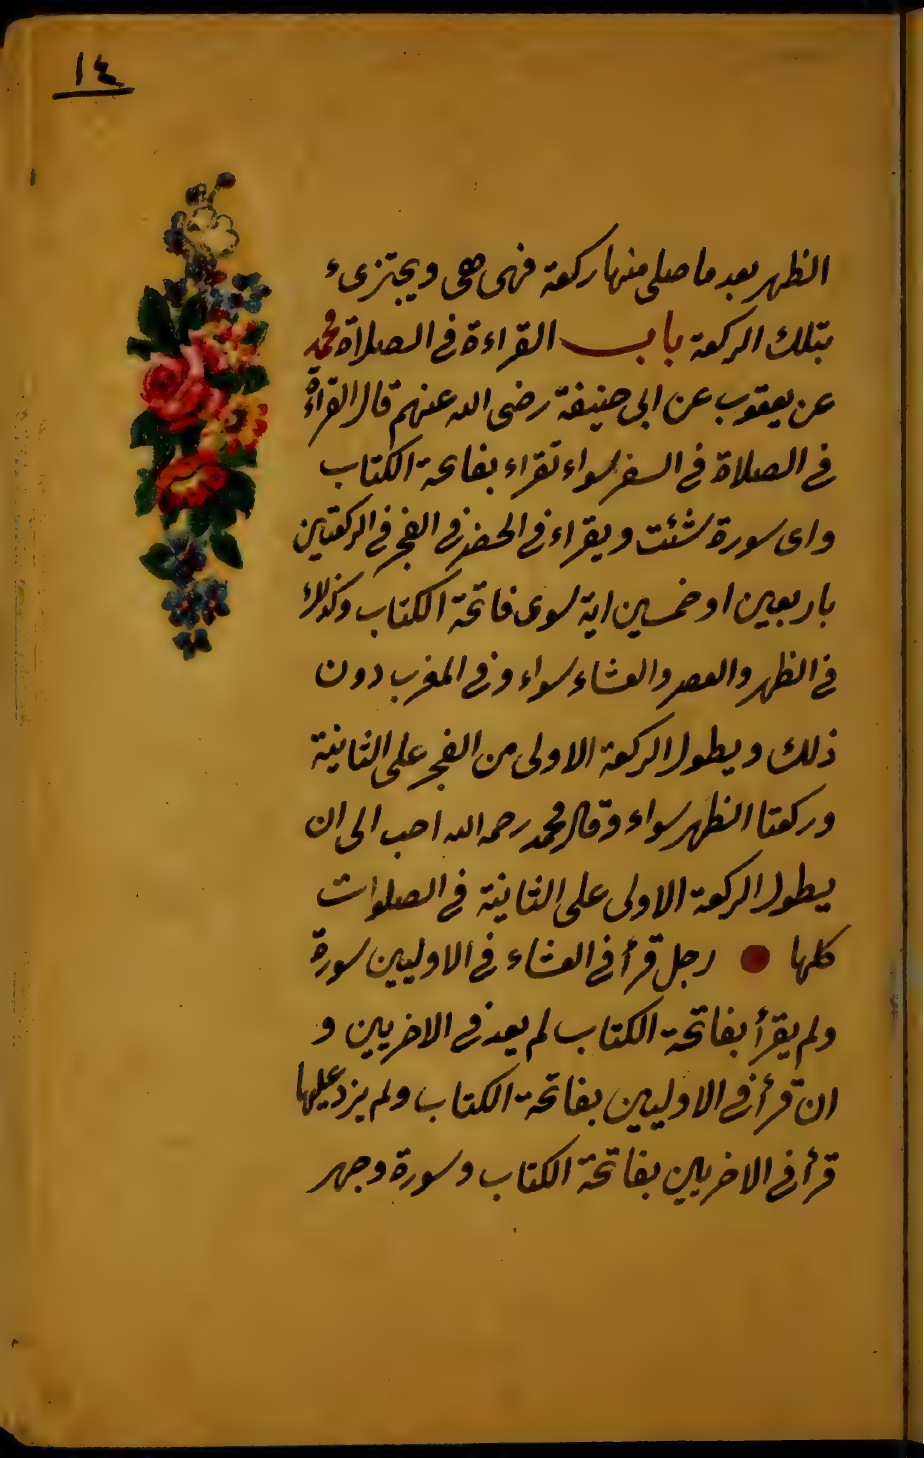 ١٤
الظهر بعد ما صلى منها ركعة فهى هى ويجتزىء
بتلك الركعة باب القراءة فى الصلاة محمد
عن يعقوب عن ابى حنيفة رضى الله عنهم قال القراءة
فى الصلاة فى السفر سواء تقراء بفاتحة الكتاب
واى سورة شئت ويقراء فى الحضر فى الفجر فى الركعتين
باربعين او خمسين اية سوى فاتحة الكتاب وكذلك
فى الظهر والعصر والعشاء سواء وفى المغرب دون
ذلك ويطول الركعة الاولى من الفجر على الثانية
وركعتا الظهر سواء وقال محمد رحمه الله احب الى ان
يطول الركعة الاولى على الثانية فى الصلوات
كلها رجل قرأ فى العشاء فى الاوليين سورة
ولم يقرأ بفاتحة الكتاب لم يعد فى الاخريين و
ان قرأ فى الاوليين بفاتحة الكتاب ولم يزد عليها
قرأ فى الاخريين بفاتحة الكتاب وسورة وجهر